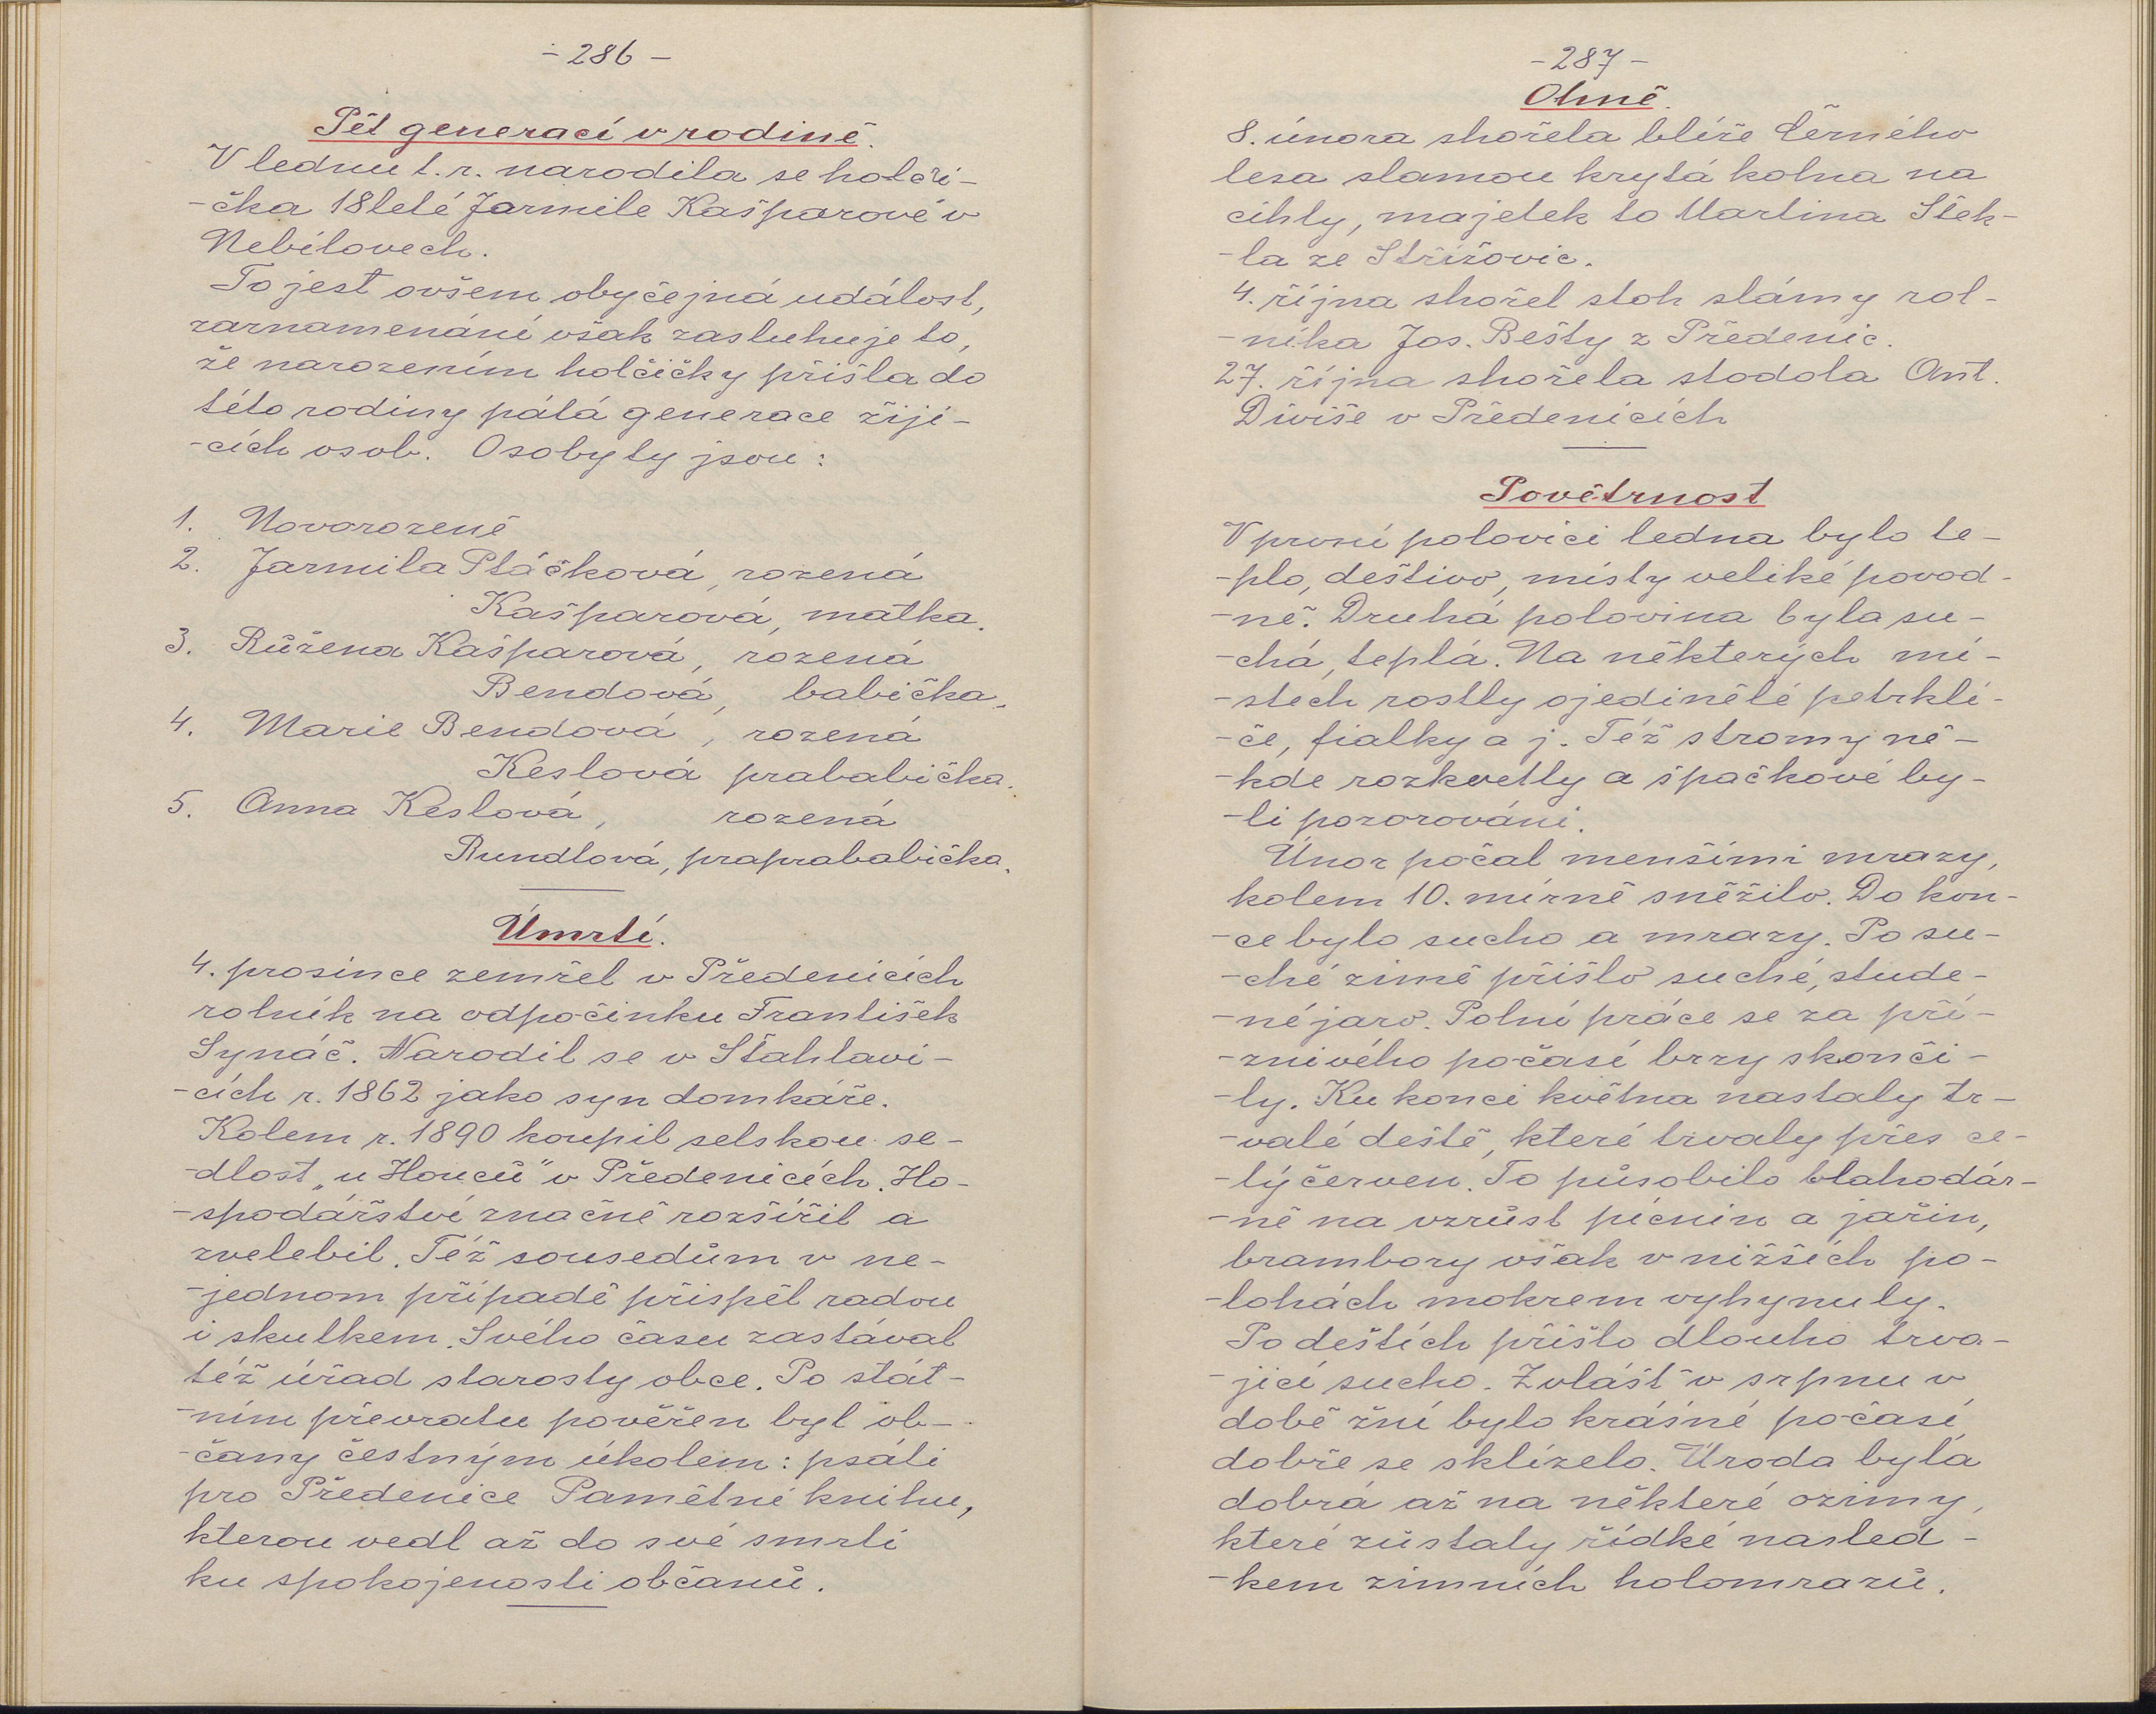 - 286 -
Pět generací v rodině.
V lednu t. r. narodila se holči-
-čka 18leté Jarmile Kašparové v
Nebílovech.
To jest ovšem obyčejná událost,
zarnamenání však zasluhuje to,
že narozením holčičky přišla do
této rodiny pátá generace žijí-
-cích osob. Osoby ty jsou:
1. Novorozeně
2. Jarmila Ptáčková, rozená
Kašparová, matka.
3. Růžena Kašparová, rozená
Bendová, babička.
4. Marie Bendová, rozená
Keslová prababička.
5. Anna Keslová, rozená
Rundlová, praprababička.
Úmrtí.
4. prosince zemřel v Předenicích
rolník na odpočinku František
Synáč. Narodil se v Šťáhlavi-
-cích r. 1862 jako syn domkáře.
Kolem r. 1890 koupil selskou se-
-dlost „u Houců" v Předenicích. Ho-
-spodářství značně rozšířil a
zvelebil. Též sousedům v ne-
-jednom případě přispěl radou
i skutkem. Svého času zastával
též úřad starosty obce. Po stát-
-ním převratu pověřen byl ob-
-čany čestným úkolem: psáti
pro Předenice Pamětní knihu,
kterou vedl až do své smrti
ku spokojenosti občanů.
- 287 -
Ohně.
8. února shořela blíže Černého
lesa slamou krytá kolna na
cihly, majetek to Martina Štek-
-la ze Střížovic.
4. října shořel stoh slámy rol-
-níka Jos. Bešty z Předenic.
27. října shořela stodola Ant.
Diviše v Předenicích
Povětrnost
V první polovici ledna bylo te-
-plo, deštivo, místy veliké povod-
-ně. Druhá polovina byla su-
-chá, teplá. Na některých mí-
-stech rostly ojedinělé petrklí-
-če, fialky a j. Též stromy ně-
-kde rozkvetly a špačkové by-
-li pozorováni.
Únor počal menšími mrazy,
kolem 10. mírně sněžilo. Do kon-
-ce bylo sucho a mrazy. Po su-
-ché zimě přišlo suché, stude-
-né jaro. Polní práce se za pří-
-znivého počasí brzy skonči-
-ly. Ku konci května nastaly tr-
-valé deště, které trvaly přes ce-
-lý červen. To působilo blahodár-
-ně na vzrůst pícnin a jařin,
brambory však v nižších po-
-lohách mokrem vyhynuly.
Po deštích přišlo dlouho trva-
-jící sucho. Zvlášť v srpnu v
době žní bylo krásné počasí
dobře se sklízelo. Úroda byla
dobrá až na některé ozimy,
které zůstaly řídké násled-
-kem zimních holomrazů.